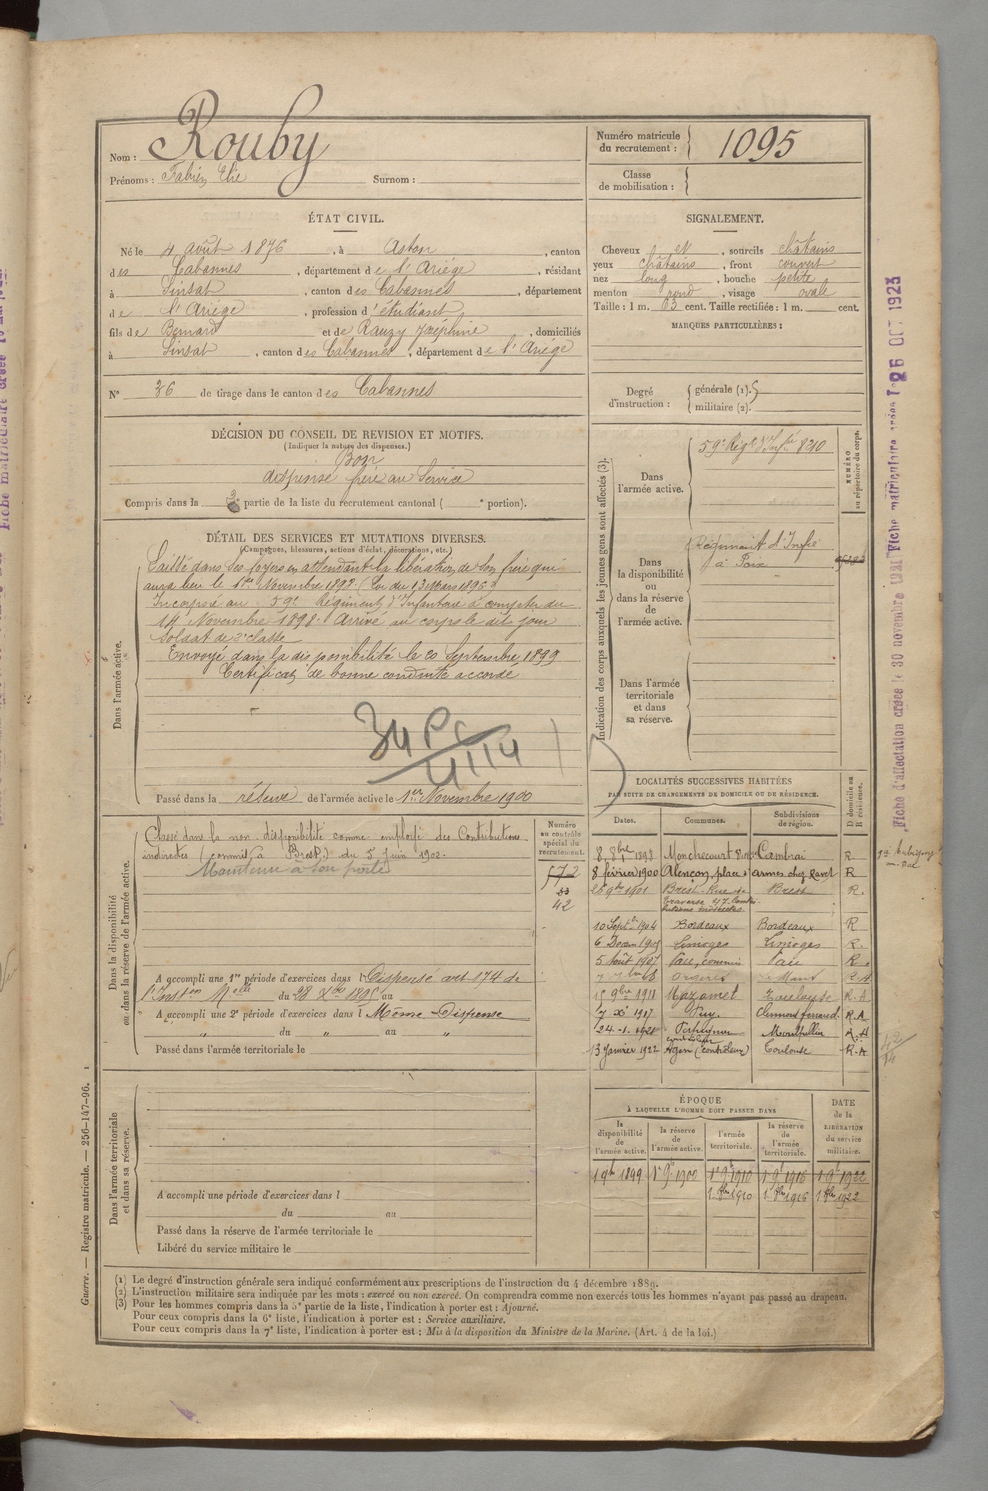 Nom : Rouby
Prénoms : Fabien Elie Surnom :
Numéro matricule du recrutement : 1095
Classe de mobilisation :
ÉTAT CIVIL.
Né le 4 août 1876, à Aston, canton
des Cabannes, département de l'Ariège, résidant
à Sinsat, canton des Cabannes, département
de l'Ariège, profession d'étudiant
fils de Bernard et de Rauzy Joséphine, domiciliés
à Sinsat, canton des Cabannes, département de l'Ariège
N° 36 de tirage dans le canton des Cabannes
SIGNALEMENT.
Cheveux et, sourcils châtains
yeux châtains, front couvert
nez long, bouche petite
menton rond, visage ovale
Taille : 1 m. 63 cent. Taille rectifiée : 1 m. cent.
MARQUES PARTICULIÈRES :
Degré d'instruction : générale (1). 5
militaire (2).
DÉCISION DU CONSEIL DE REVISION ET MOTIFS.
(Indiquer la nature des dispenses.)
Bon
dispensé frère au Service
Compris dans la 2e partie de la liste du recrutement cantonal ( e portion).
DÉTAIL DES SERVICES ET MUTATIONS DIVERSES.
(Campagnes, blessures, actions d'éclat, décorations, etc.)
Dans l'armée active.
Laissé dans ses foyers en attendant la libération de son frère qui
aura lieu le 1er Novembre 1898
Incorporé au 59e Régiment d'Infanterie à compter du
14 Novembre 1898. Arrivé au corps le dit jour
Soldat de 2e classe
Envoyé dans la disponibilité le 20 Septembre 1899
Certificat de bonne conduite accordé
Passé dans la réserve de l'armée active le 1er Novembre 1900
Indication des corps auxquels les jeunes gens sont affectés (3).
NUMÉRO au répertoire du corps.
Dans l'armée active. 59e Régt d'Infie 8210
Dans la disponibilité ou dans la réserve de l'armée active. Régiment d'Infie à Foix
Dans l'armée territoriale et dans sa réserve.
Dans la disponibilité ou dans la réserve de l'armée active.
Classé dans la non disponibilité comme employé des Contributions
indirectes (commis à Brest) du 5 Juin 1902.
Maintenu à son poste
Numéro au contrôle spécial du recrutement.
572
42
A accompli une 1re période d'exercices dans l Dispensé art 174 de
l'Inston Melle du 28 Xbre 1895 au
A accompli une 2e période d'exercices dans l Même Dispense
du au
Passé dans l'armée territoriale le
LOCALITÉS SUCCESSIVES HABITÉES
PAR SUITE DE CHANGEMENTS DE DOMICILE OU DE RÉSIDENCE.
Dates. Communes. Subdivisions de région. D domicile ou R résidence.
8 8bre 1898 Monchecourt Cambrai R
8 février 1900 Alençon, place d'armes chez Ravel R
1901 Brest Brest R.
10 Septe 1904 Bordeaux Bordeaux R
6 Décem 1905 Limoges Limoges R.
5 Août 1907 Pau, commis Pau R.
Orgères Le Mans R.A
9bre 1911 Mazamet Toulouse R.A
7 Xe 1917 Puy Clermont ferrand R.A
24-1- Perpignan Montpellier R.A
13 Janvier 1922 Agen (contrôleur) Toulouse R.A
ÉPOQUE
A LAQUELLE L'HOMME DOIT PASSER DANS
la disponibilité de l'armée active. la réserve de l'armée active. l'armée territoriale. la réserve de l'armée territoriale. DATE de la LIBÉRATION du service militaire.
1 9bre 1899 1er 9e 1900 1er 9e 1910 1er 9e 1916 1 9e 1922
1 8bre 1910 1 8bre 1916 1 8bre 1922
Dans l'armée territoriale et dans sa réserve.
A accompli une période d'exercices dans l
du au
Passé dans la réserve de l'armée territoriale le
Libéré du service militaire le
(1) Le degré d'instruction générale sera indiqué conformément aux prescriptions de l'instruction du 4 décembre 1889.
(2) L'instruction militaire sera indiquée par les mots : exercé ou non exercé. On comprendra comme non exercés tous les hommes n'ayant pas passé au drapeau.
(3) Pour les hommes compris dans la 5e partie de la liste, l'indication à porter est : Ajourné.
Pour ceux compris dans la 6e liste, l'indication à porter est : Service auxiliaire.
Pour ceux compris dans la 7e liste, l'indication à porter est : Mis à la disposition du Ministre de la Marine. (Art. 4 de la loi.)
Guerre. — Registre matricule. — 256-147-96. 1
Fiche d'affectation créée le 30 novembre 1921
Fiche matriculaire créée le 26 OCT 1923